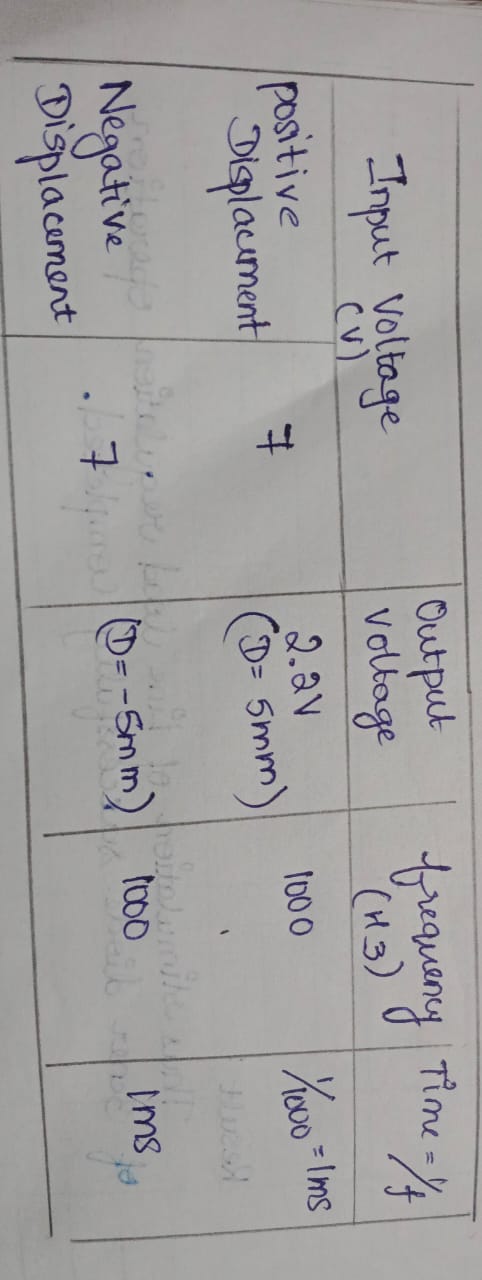 Input Voltage
(V)
Output
voltage
frequency
(Hz)
Time = 1/f
positive
Displacement
7
2.2V
(D = 5mm)
1000
1/1000 = 1ms
Negative
Displacement
7
(D = -5mm)
1000
1ms